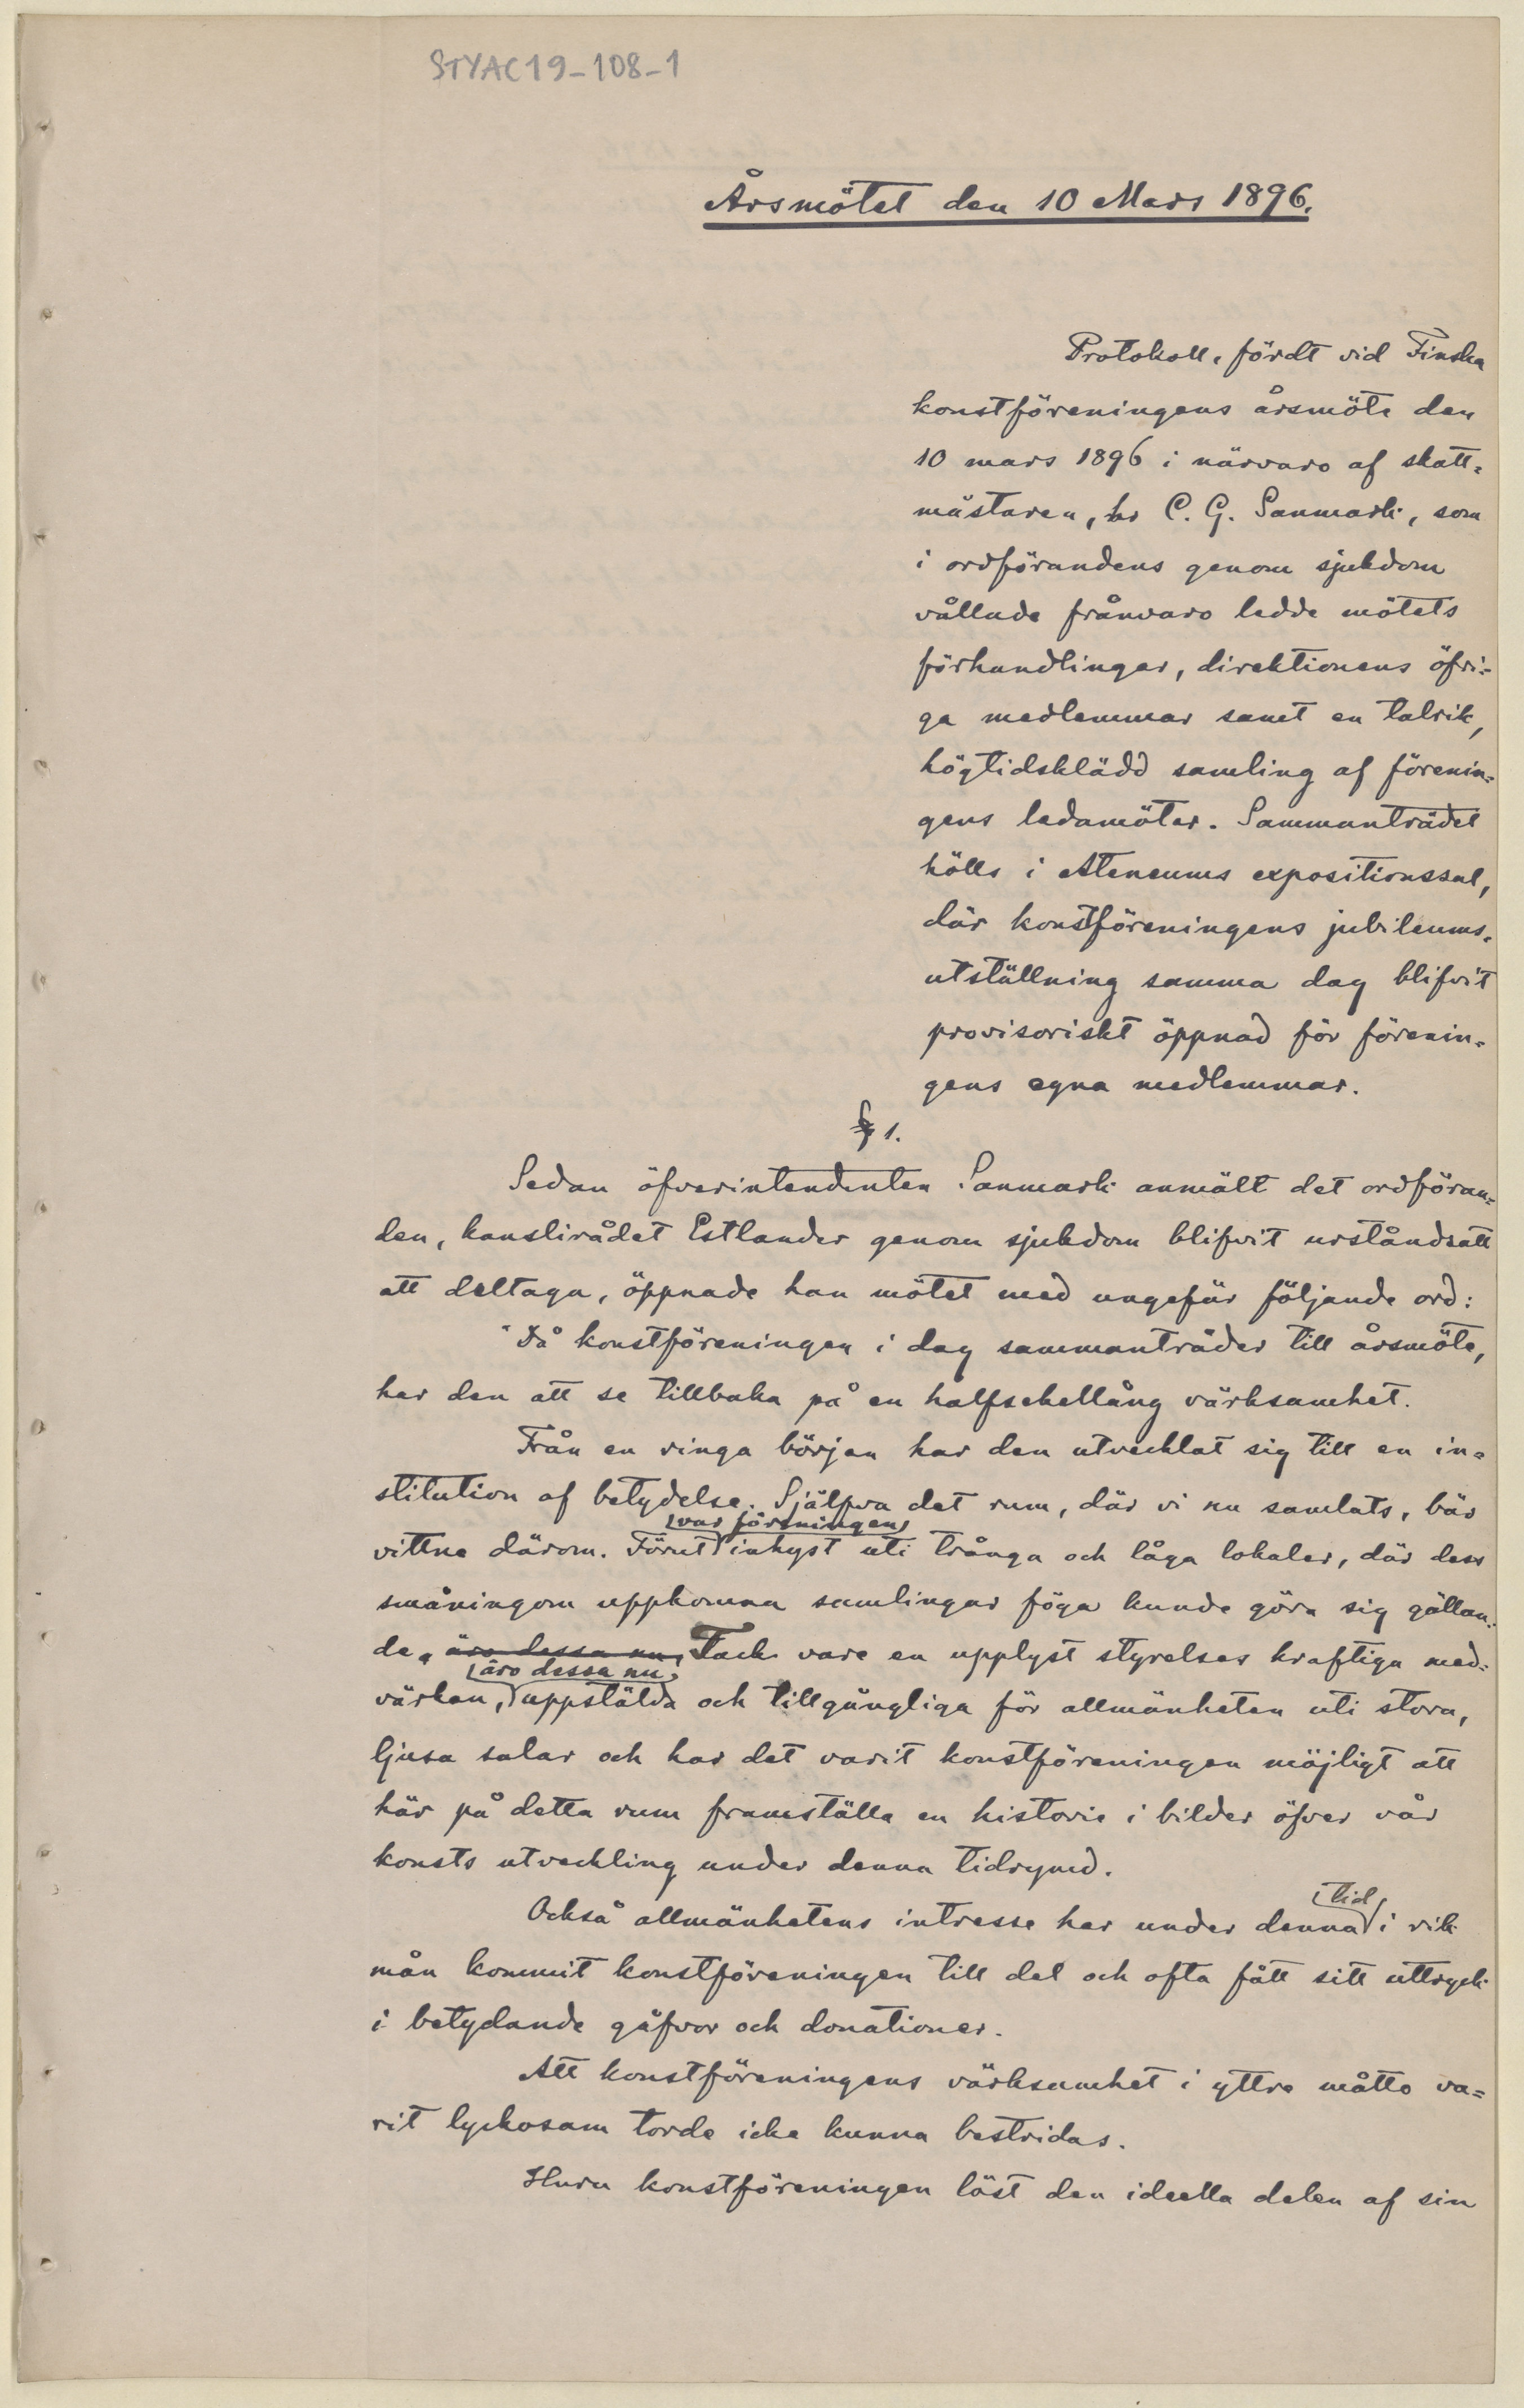 STYAC19-108-1
Årsmötet den 10 Mars 1896.
Protokoll, fördt vid Finska
konstföreningens årsmöte den
10 mars 1896 i närvaro af skatt=
mästaren, hr C. G. Sanmark, som
i ordförandens genom sjukdom
vållade frånvaro ledde mötets
förhandlingar, direktionens öfri=
ga medlemmar samt en talrik,
högtidsklädd samling af förenin=
gens ledamöter. Sammanträdet
hölls i Ateneums expositionssal,
där konstföreningens jubileums=
utställning samma dag blifvit
provisoriskt öppnad för förenin=
gens egna medlemmar.
§ 1.
Sedan öfverintendenten Sanmark anmält det ordföran=
den, kanslirådet Estlander genom sjukdom blifvit urståndsatt
att deltaga, öppnade han mötet med ungefär följande ord:
"Då konstföreningen i dag sammanträder till årsmöte,
har den att se tillbaka på en halfsekellång värksamhet.
Från en ringa början har den utvecklat sig till en in=
stitution af betydelse. Själfva det rum, där vi nu samlats, bär
var föreningen
vittne därom. Förut inhyst uti trånga och låga lokaler, där dess
småningom uppkomna samlingar föga kunde göra sig gällan=
de, äro dessa nu, Tack vare en upplyst styrelses kraftiga med=
äro dessa nu
värkan, uppstälda och tillgängliga för allmänheten uti stora,
ljusa salar och har det varit konstföreningen möjligt att
här på detta rum framställa en historie i bilder öfver vår
konsts utveckling under denna tidrymd.
tid
Också allmänhetens intresse har under denna i rik
mån kommit konstföreningen till del och ofta fått sitt uttryck
i betydande gåfvor och donationer.
Att konstföreningens värksamhet i yttre måtto va=
rit lyckosam torde icke kunna bestridas.
Huru konstföreningen löst den ideella delen af sin